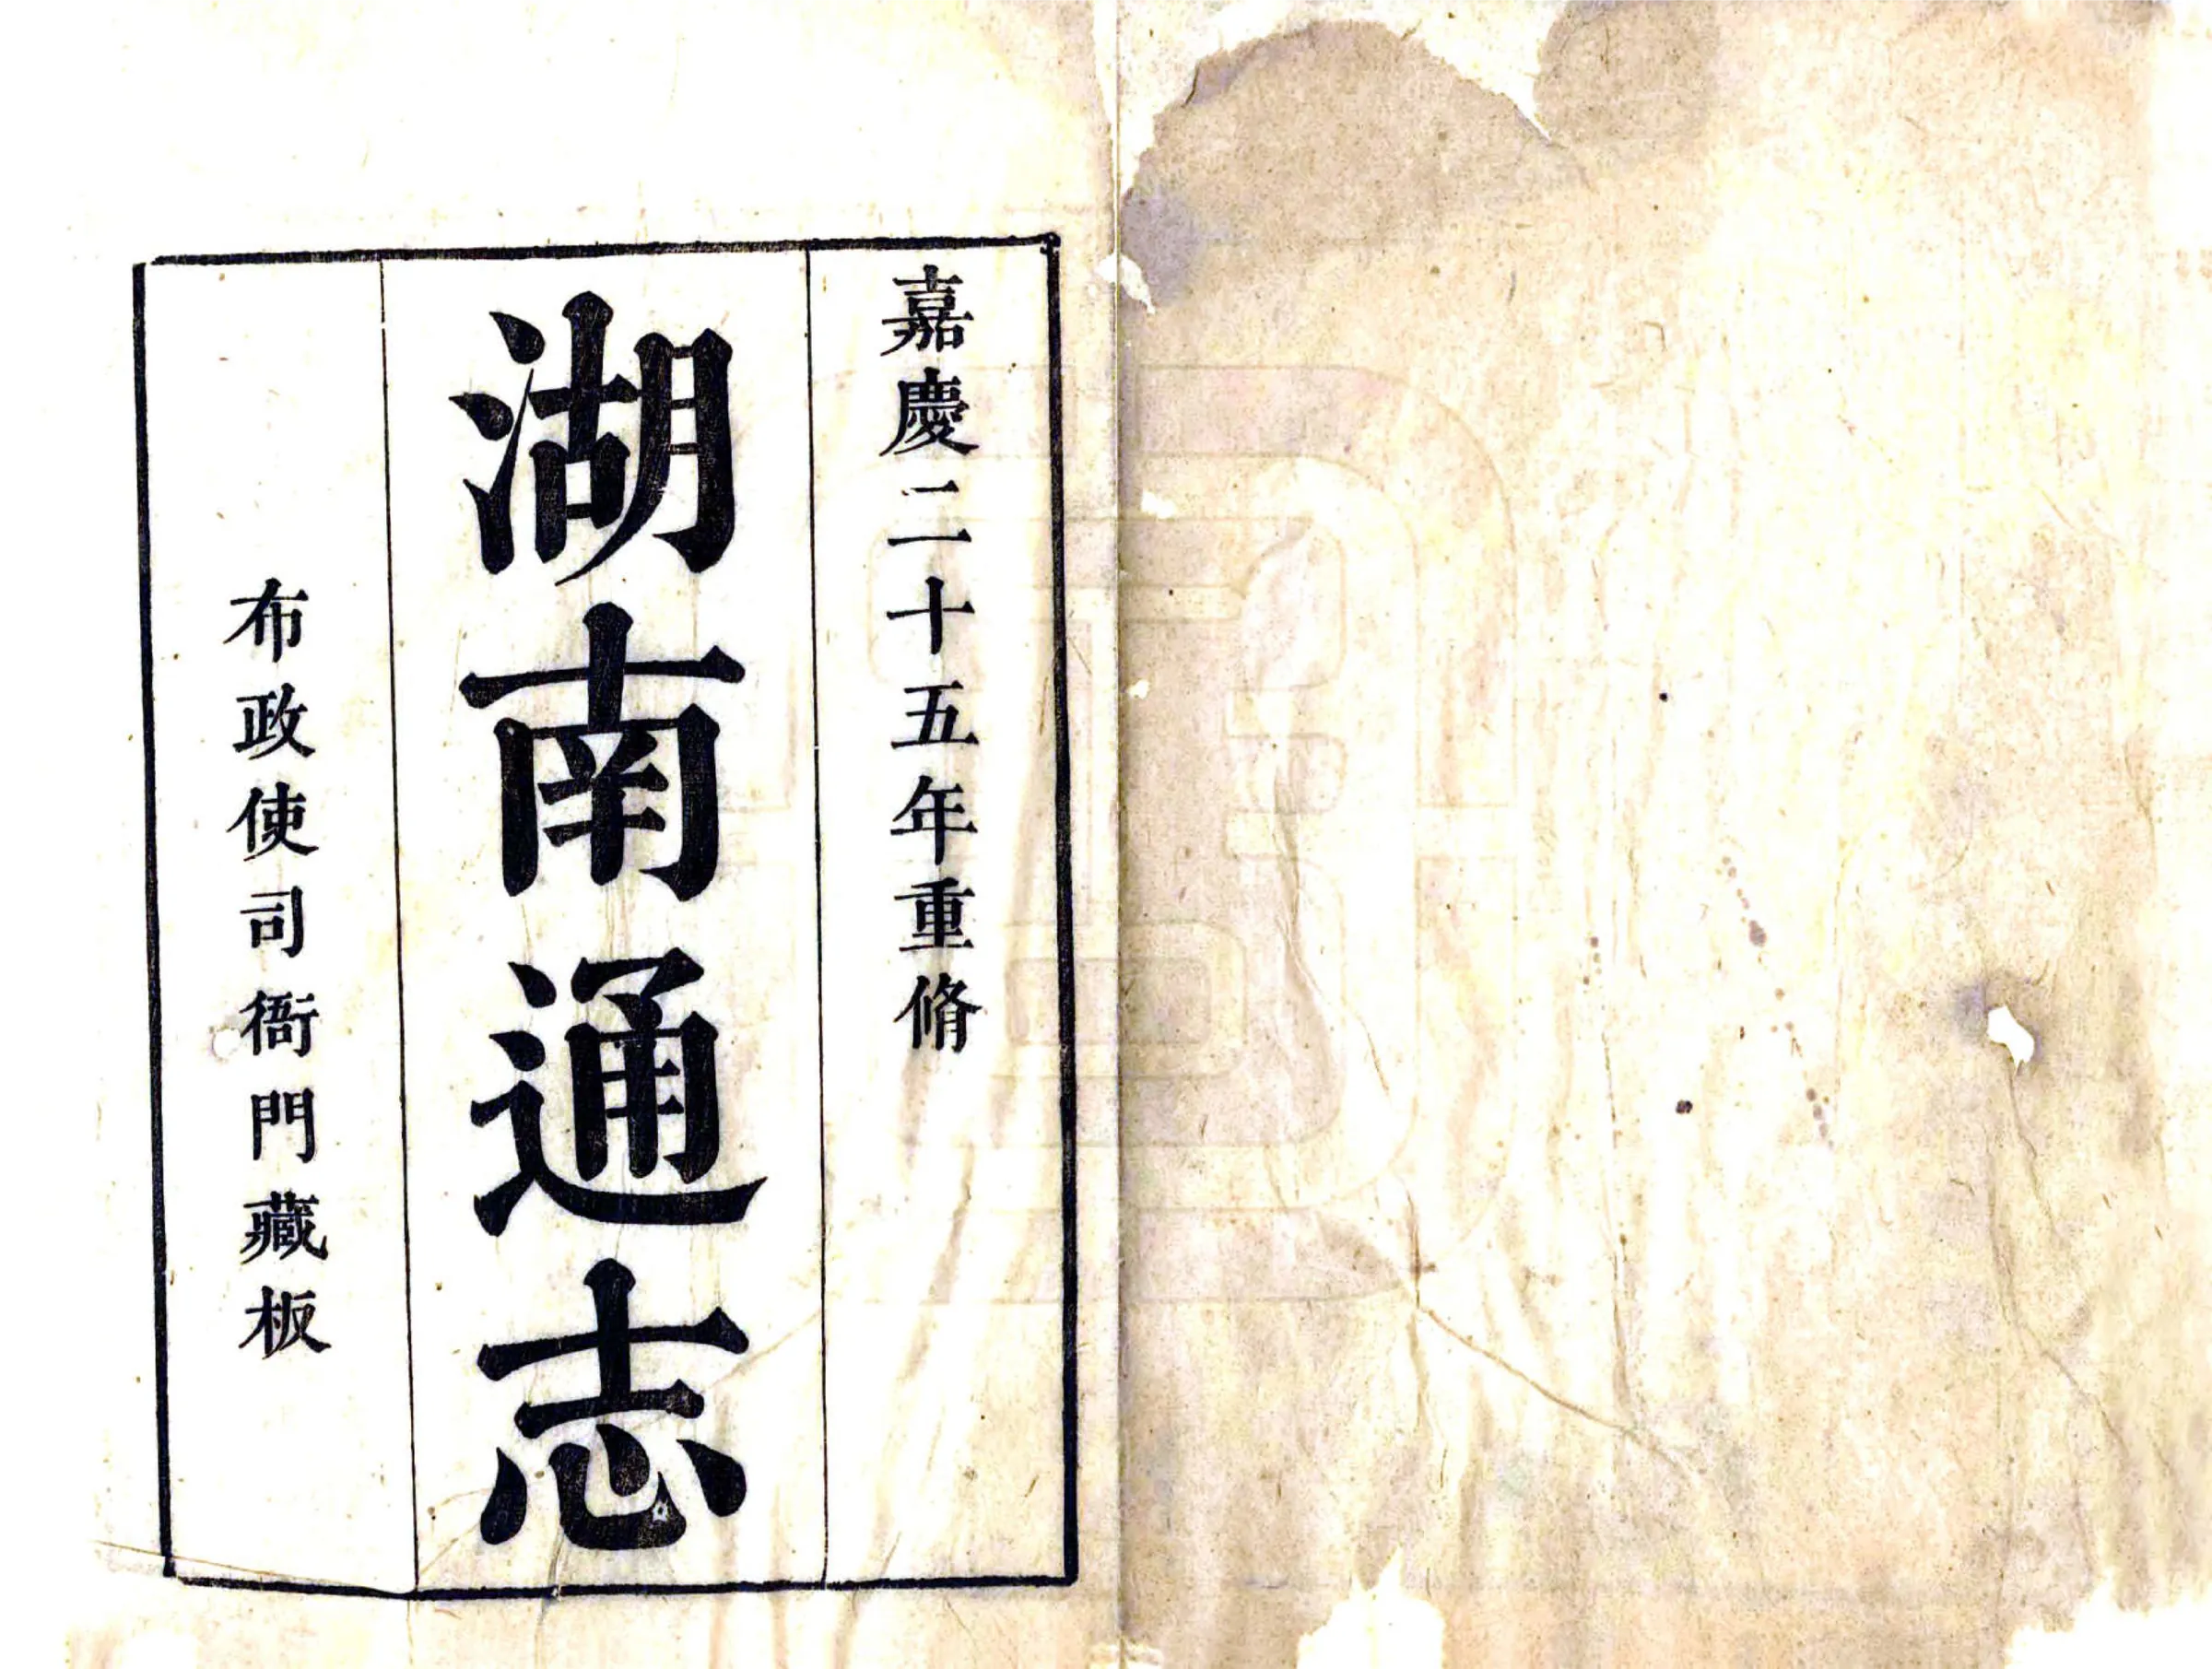 嘉慶二十五年重脩
湖南通志
布政使司衙門藏板